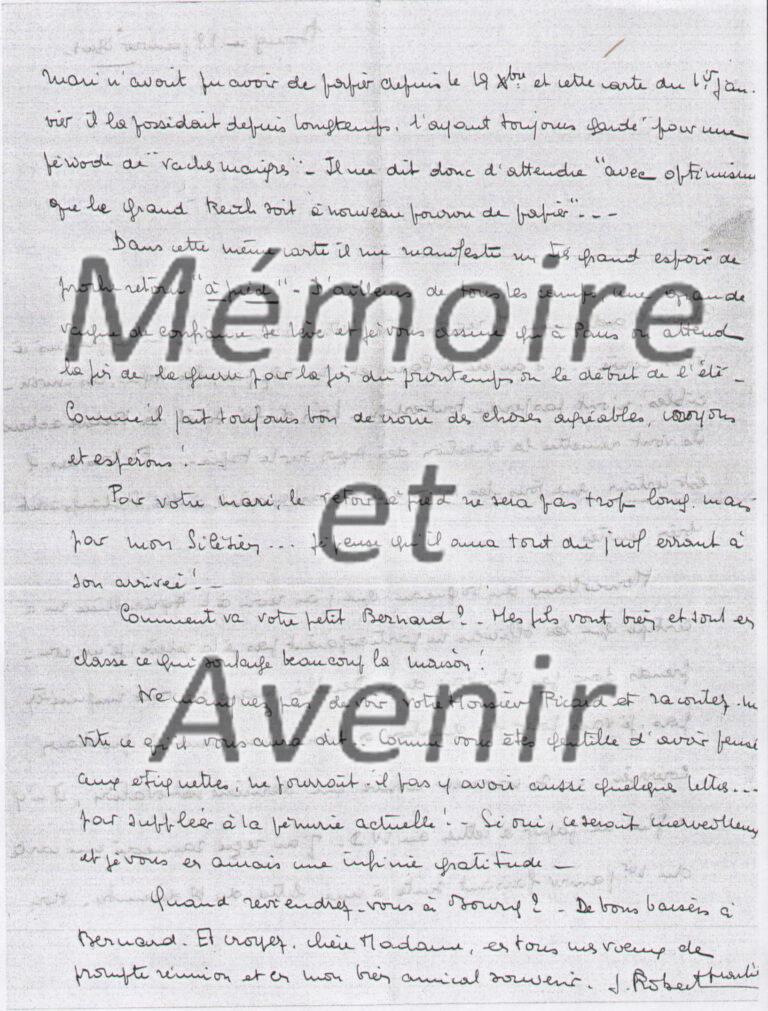 mari n'avait pu avoir de papier depuis le 19 Xbre et cette carte du 1er Jan-
vier il la possédait depuis longtemps, l'ayant toujours gardé pour une
période de "vaches maigres" - Il me dit donc d'attendre "avec optimisme
que le Grand Reich soit à nouveau pourvu de papier" - - -
Dans cette même carte il me manifeste un très grand espoir de
proche retour "à pied" - D'ailleurs de tous les camps une grande
vague de confiance se lève et je vous assure qu'à Paris on attend
la fin de la guerre pour la fin du printemps ou le début de l'été -
Comme il fait toujours bon de croire des choses agréables, croyons
et espérons ! -
Pour votre mari, le retour à pied ne sera pas trop long mais
par mon Silésien ... Je pense qu'il aura tout du juif errant à
son arrivée ! -
Comment va votre petit Bernard ? - Mes fils vont bien et sont en
classe ce qui soulage beaucoup la maison !
Ne manquez pas de voir votre Monsieur Picard et racontez-m
vite ce qu'il vous aura dit. Comme vous êtes gentille d'avoir pensé
aux étiquettes, ne pourrait-il pas y avoir aussi quelques lettres ...
par suppléer à la pénurie actuelle ! - Si oui, ce serait merveilleux
et je vous en aurais une infinie gratitude -
Quand reviendrez-vous à Bourg ? - De bons baisers à
Bernard. Et croyez, chère Madame, en tous mes voeux de
prompte réunion et en mon bien amical souvenir. J. Robert
Mémoire
et
Avenir